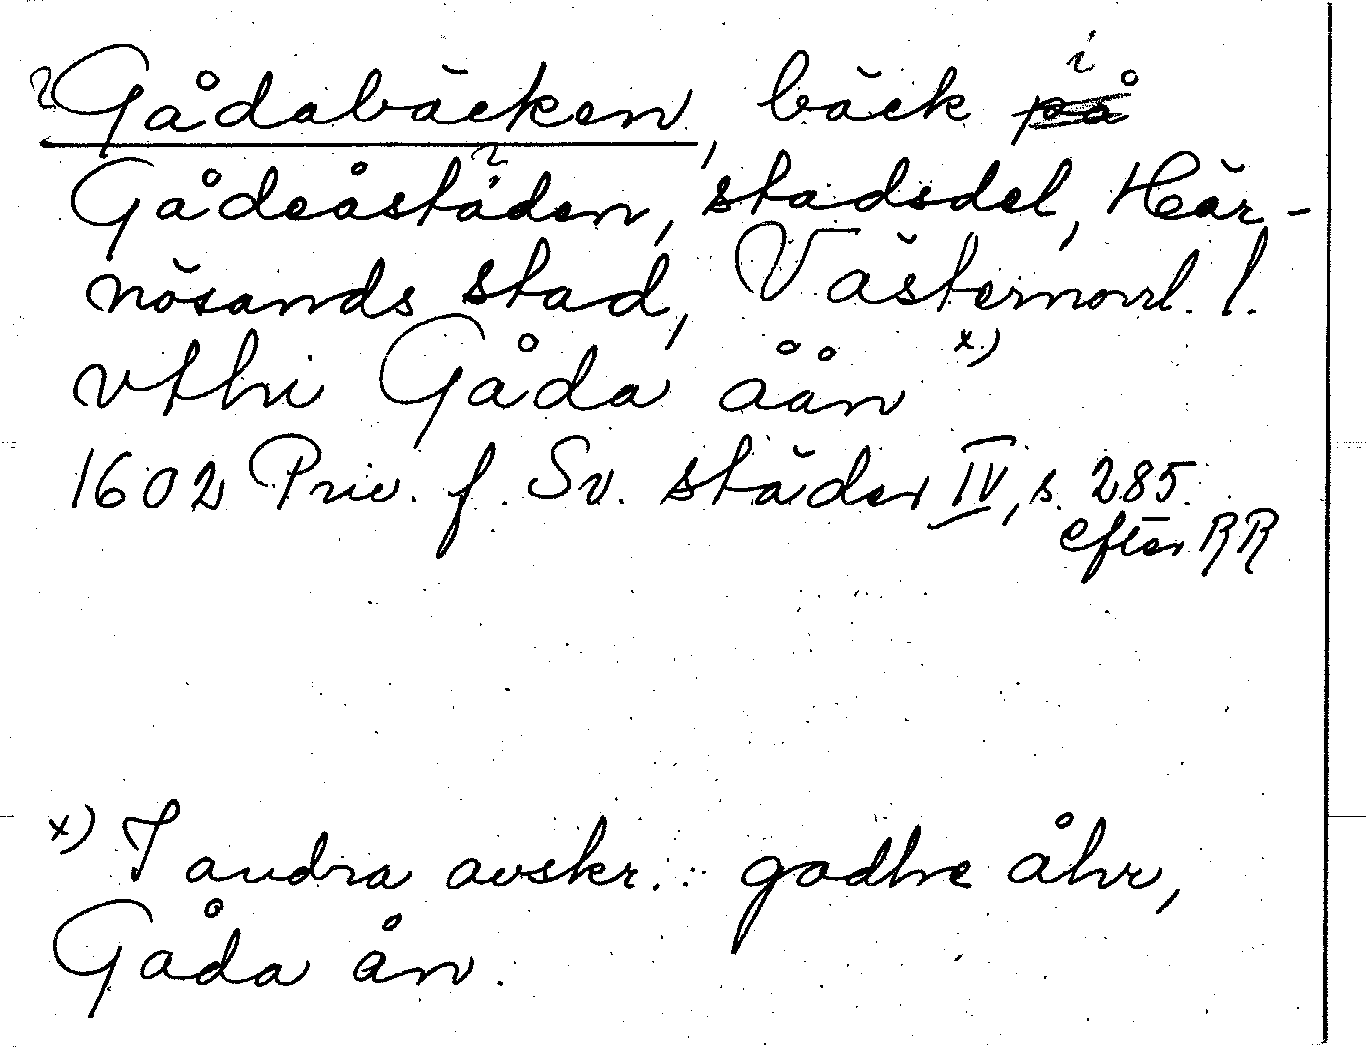 ? Gådabäcken, bäck på i
Gådeåstaden, stadsdel, Här-
nösands stad, Västernorrl. l.
vthi Gåda åån x)
1602 Priv. f. Sv. städer IV, s. 285
efter RR
x) I andra avskr.: gadhe åhr,
Gåda ån.